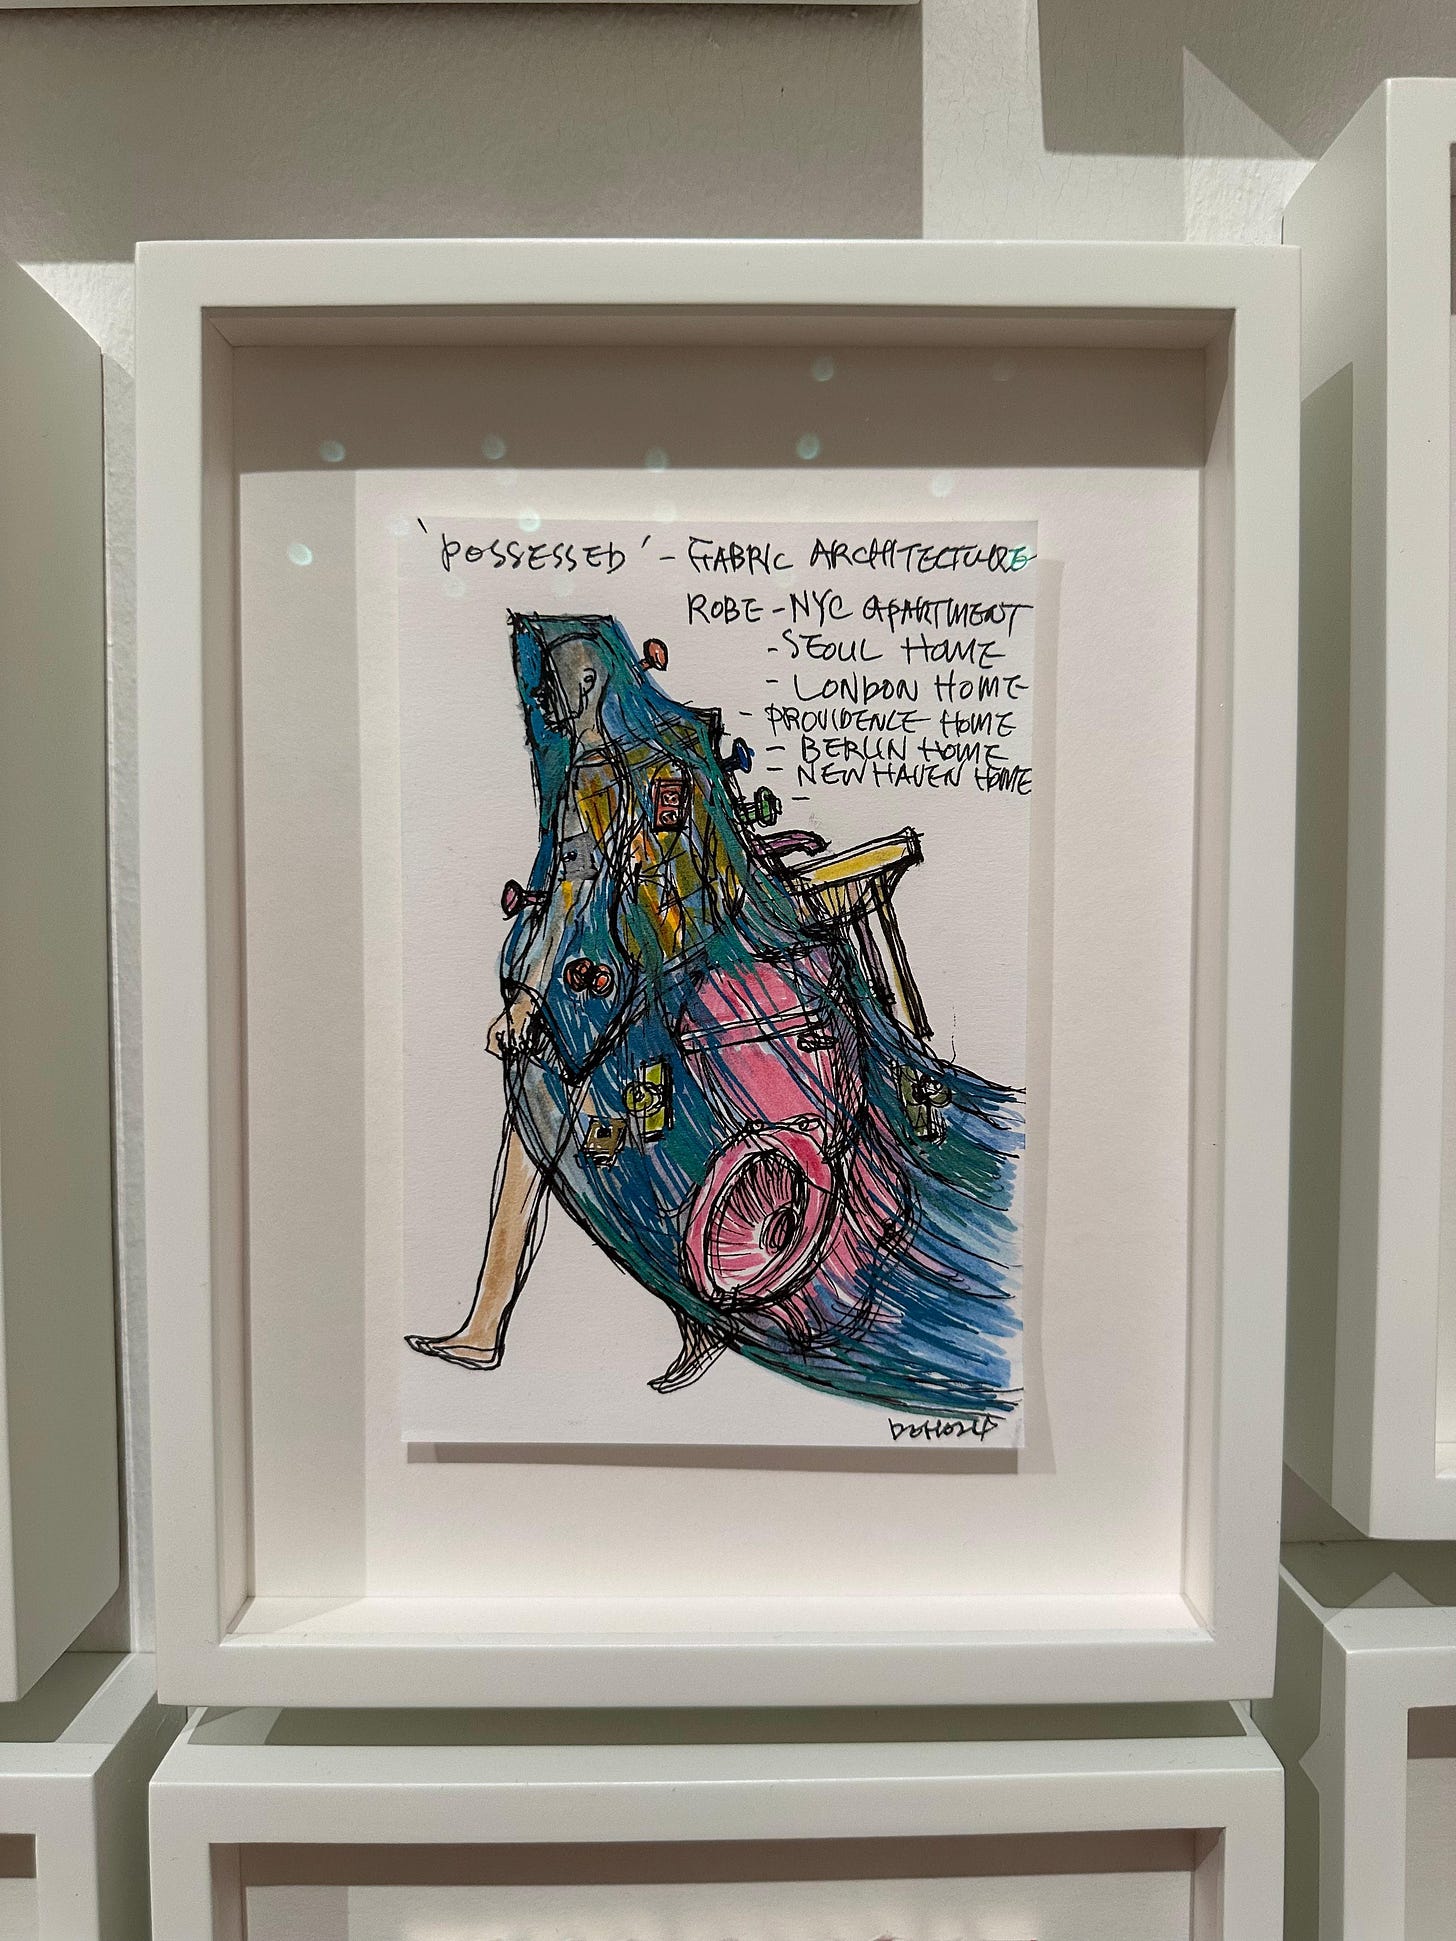 'POSSESSED' - FABRIC ARCHITECTURE
ROBE - NYC APARTMENT
- SEOUL HOME
- LONDON HOME
- PROVIDENCE HOME
- BERLIN HOME
- NEW HAVEN HOME
-